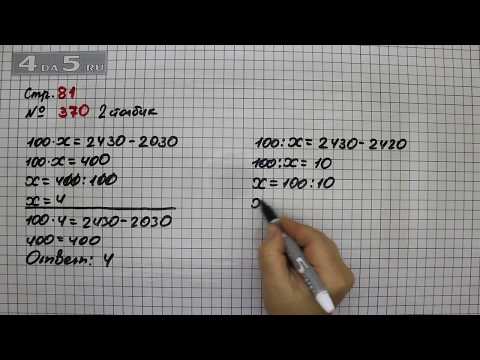 4 DA 5 RU
Стр. 81
№ 370 2 столбик
100·x = 2430 - 2030
100·x = 400
x = 400 : 100
x = 4
100·4 = 2430 - 2030
400 = 400
Ответ: 4
100 : x = 2430 - 2420
100 : x = 10
x = 100 : 10
x